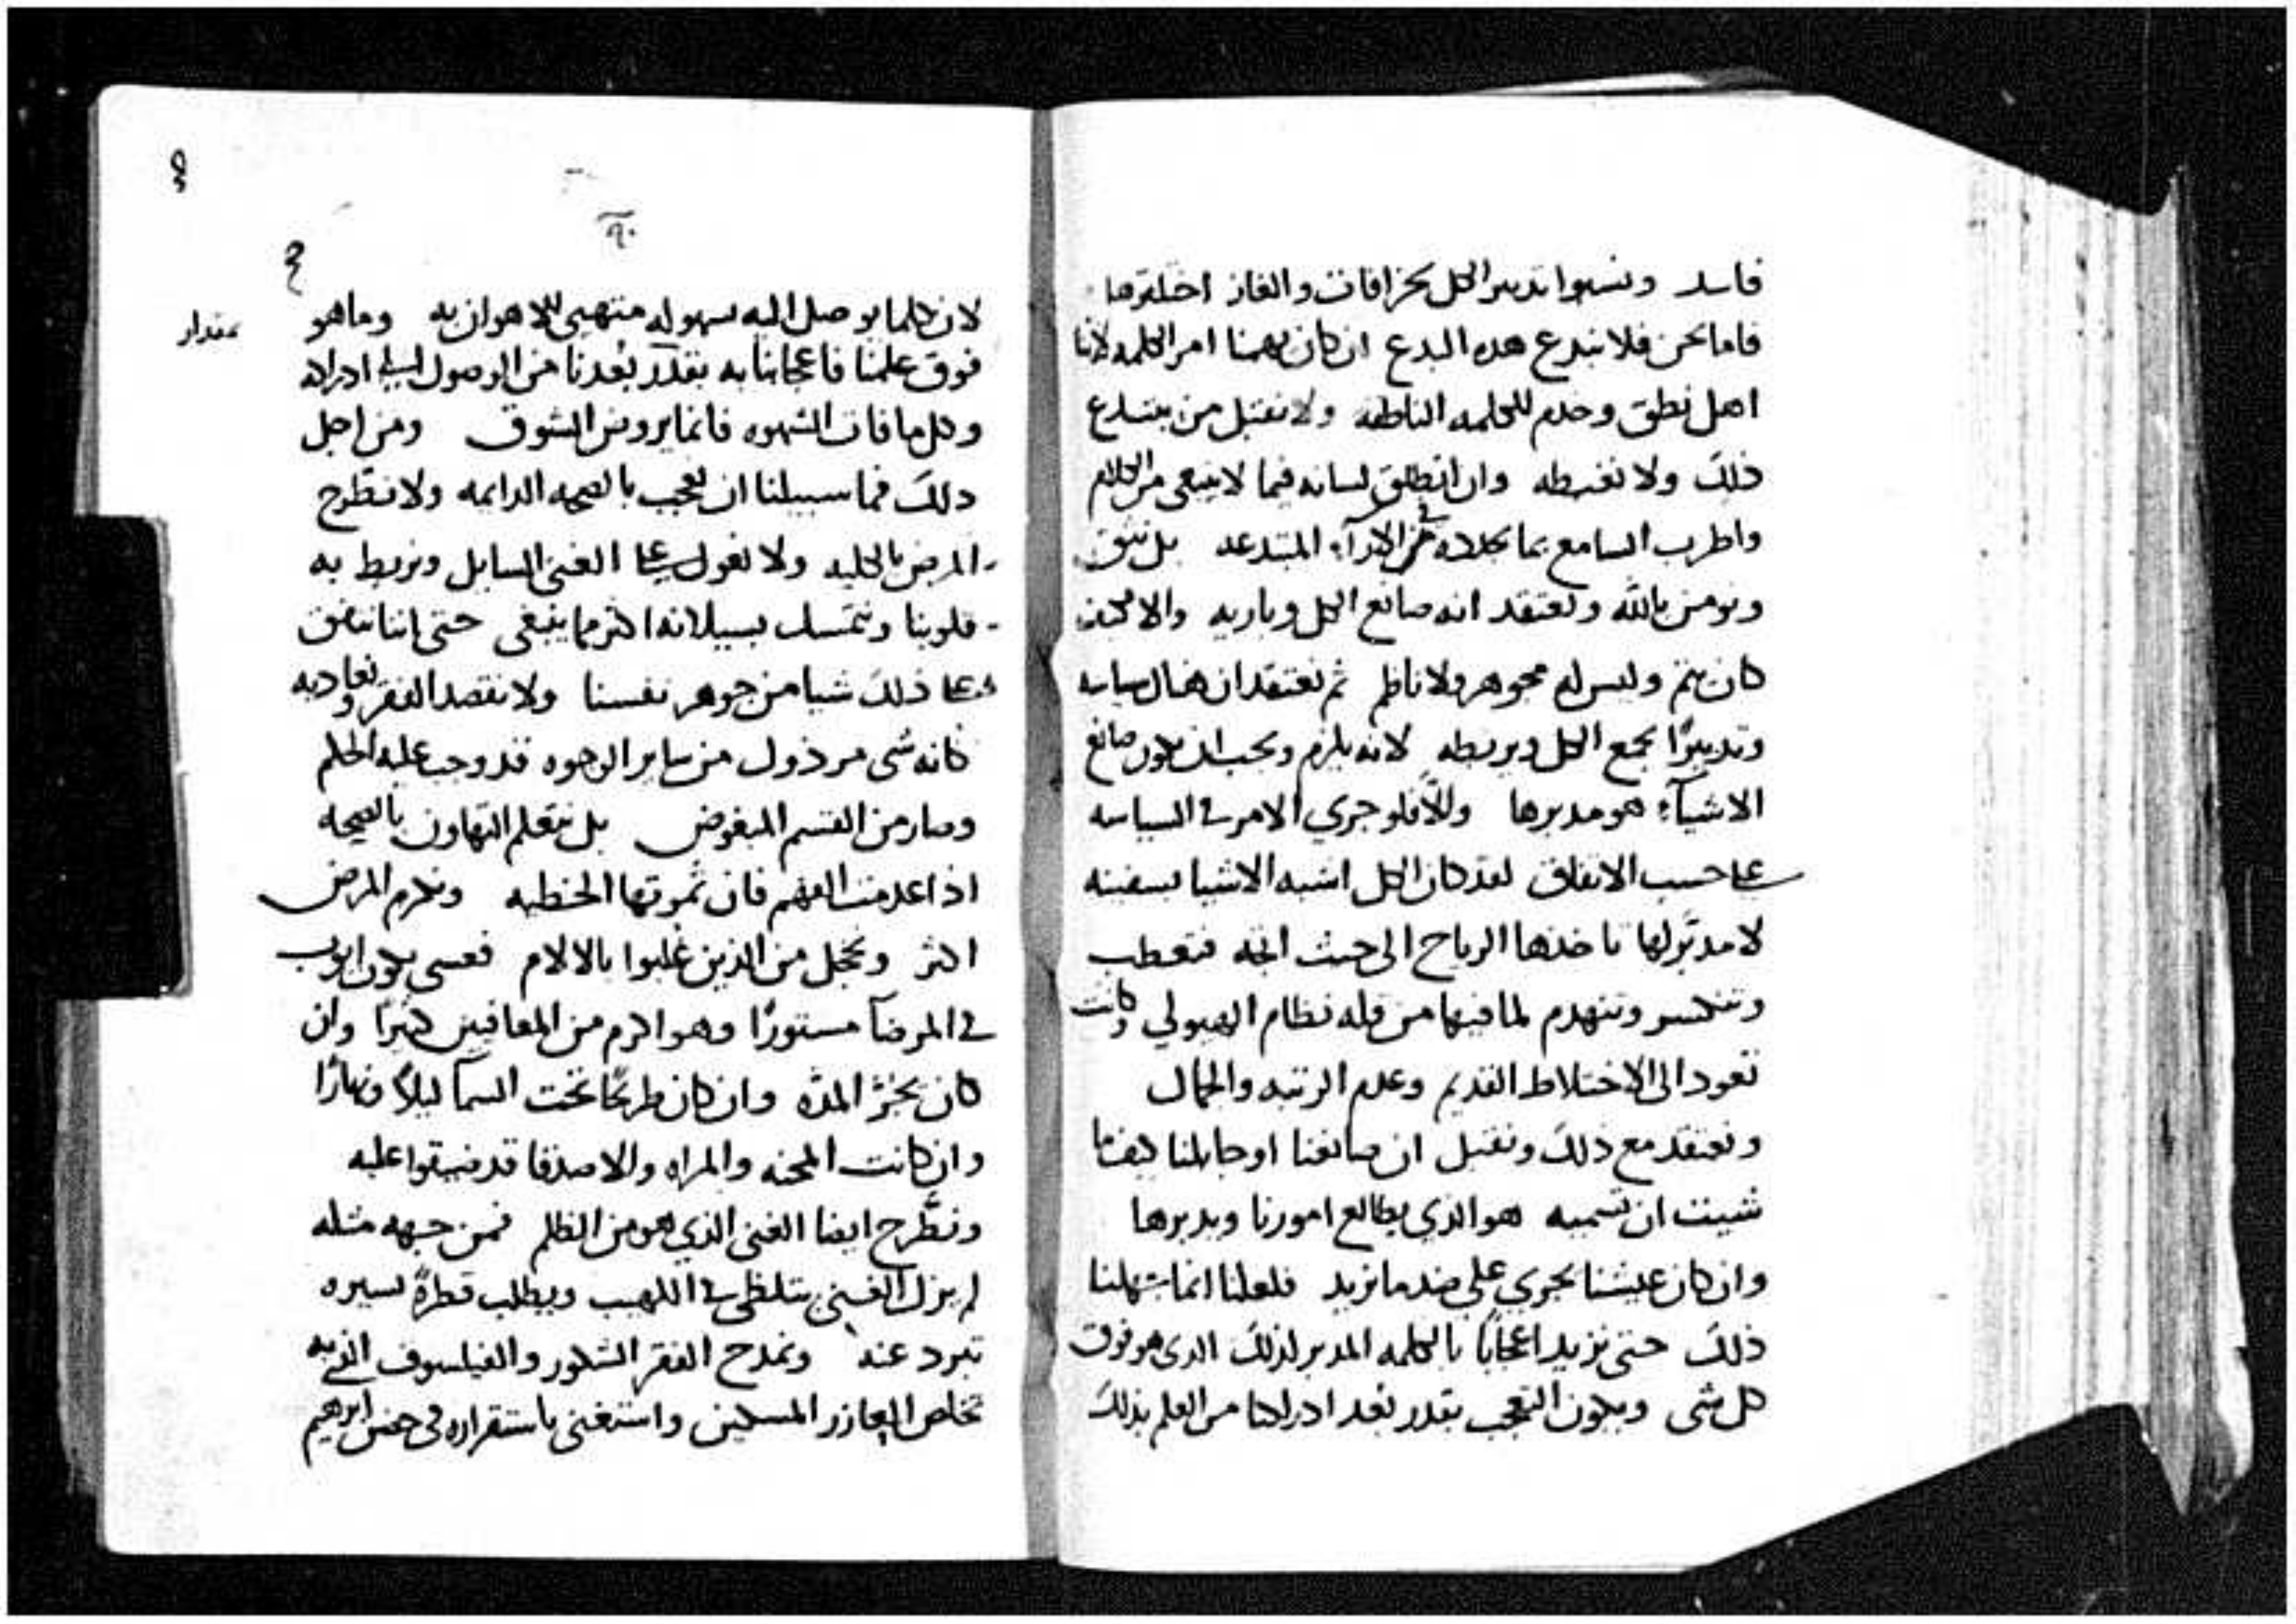 فاسد ونسبوا تدبير الكل بخرافات والغاز اختلقوها
فاما نحن فلا نبدع هذه البدع ان كان يهمنا امر الكلمه لاننا
اهل نطق وخدم للكلمه الناطقه ولا نقبل من يبتدع
ذلك ولا نغبطه وان انطلق لسانه فيما لا ينبغي من الكلام
واطرب السامع بما بكلامه من الاراء المبتدعه بل نثق
ونومن بالله ونعتقد انه صانع الكل وباريه والا فكيف
كان يتم وليس له مجوهر ولا ناظم ثم نعتقد ان هناك سياسه
وتدبيرًا يجمع الكل ويربطه لانه يلزم ويجب ان يكون صانع
الاشيآء هو مدبرها والّا فلو جري الامر في السياسه
على حسب الاتفاق لقد كان الكل اشبه الاشيا بسفينه
لا مدبّر لها تاخذها الرياح الى حيث اتجه فتعطب
وتنكسر وتنهدم لما فيها من قله نظام الهيولي وكانت
تعود الى الاختلاط القديم وعدم الرتبه والجمال
ونعتقد مع ذلك ونقبل ان صانعنا او جابلنا كيفما
شيت ان تسميه هو الذي يطالع امورنا ويدبرها
وان كان عيشنا يجري على ضد ما نريد فلعلنا انما
ذلك حتى نزيد اعجابًا بالكلمه المدبر لذلك الذي هو فوق
كل شي ويكون التعجب بقدر بُعد ادراكنا من العلم بذلك
٩٠
لان كلما يوصل اليه بسهوله منتهيي للاهوان به وما هو
فوق علمنا فاعجابنا به بقدر بُعدنا من الوصول الى ادراكه
وكل ما فات الشهوه فانما يروض الشوق ومن اجل
ذلك فما سبيلنا ان نعجب بالصحه الدايمه ولا نطّرح
المرض بالكليه ولا نعول على الغنى السايل ونربط به
قلوبنا ونتمسك بسيلانه اكثر مما ينبغي حتى اننا ننفق
على ذلك شيا من جوهر نفسنا ولا نقصد الفقر ونعاديه
كانه شي مرذول من ساير الوجوه قد وجب عليه الحكم
وصار من القسم المبغوض بل نتعلم التهاون بالصحه
اذا عدمت الفهم فان ثمرتها الخطيه ونكرم المرض
اكثر ونجل من الذين غلبوا بالالام فعسى يكون ايوب
في المرضآ مستورًا وهو اكرم من المعافين كثيرًا وان
كان يجرّ المدّه وان كان طريحًا تحت السمآ ليلًا ونهارًا
وان كانت المحنه والمراه والاصدقا قد ضيقوا عليه
ونطّرح ايضا الغنى الذي هو من الظلم فمن جهه مثله
لم يزل الغني يتلظى في اللهيب ويطلب قطرةً يسيره
تبرد عنه ونمدح الفقر الشكور والفيلسوف الذي به
تخلص العازر المسكين واستغنى باستقراره في حضن ابرهيم